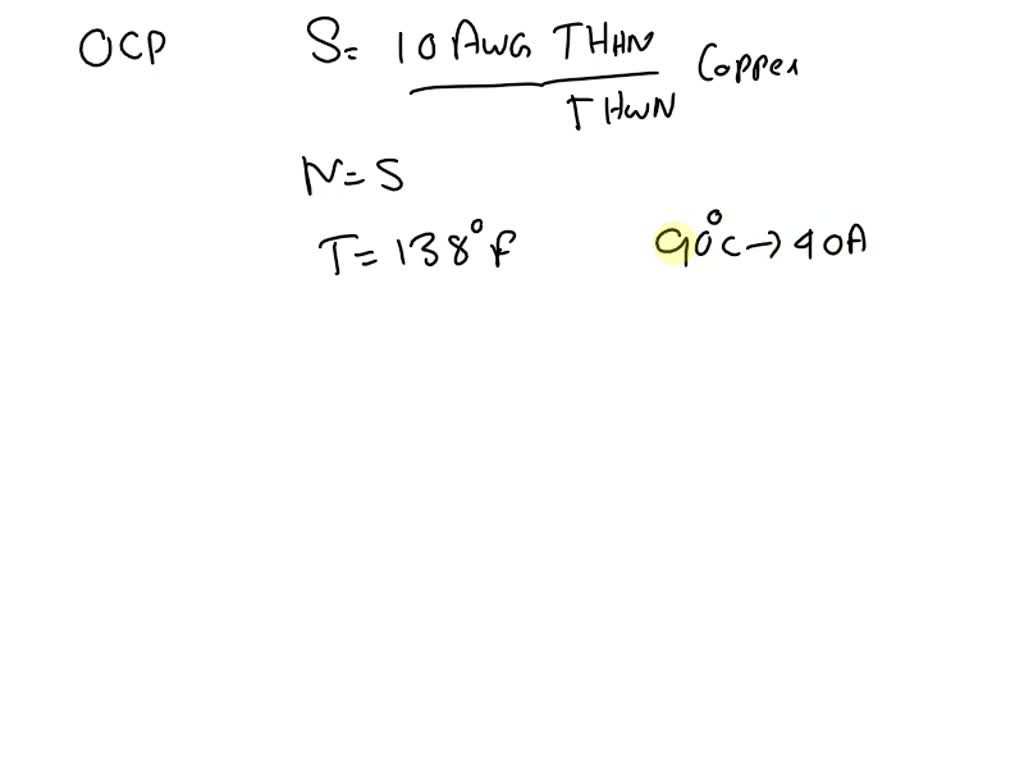 OCP
S= 10 AWG THHN Copper
THWN
N= 5
T= 138°F 90°C→40A